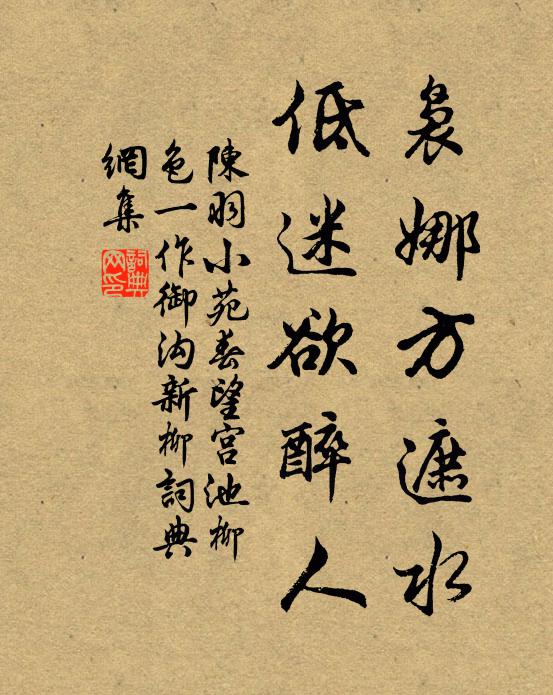 裊娜方遮水
低迷欲醉人
陳羽小苑春望宮池柳
色一作御沟新柳詞典
網集
詞典
网印